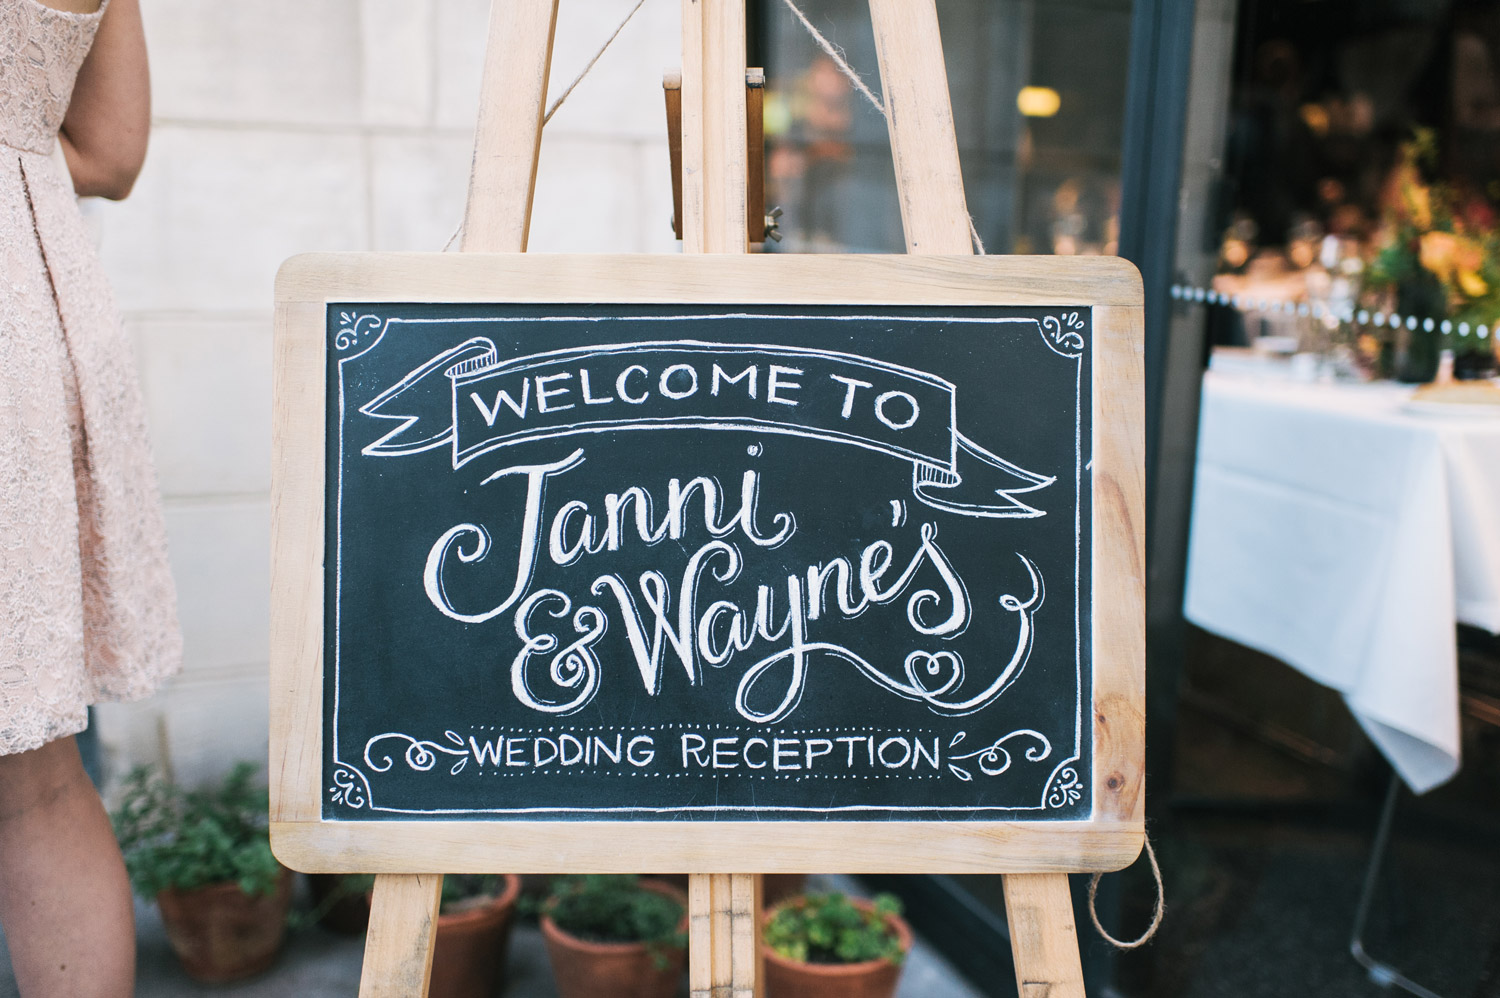 WELCOME TO
Janni
& Wayne's
WEDDING RECEPTION